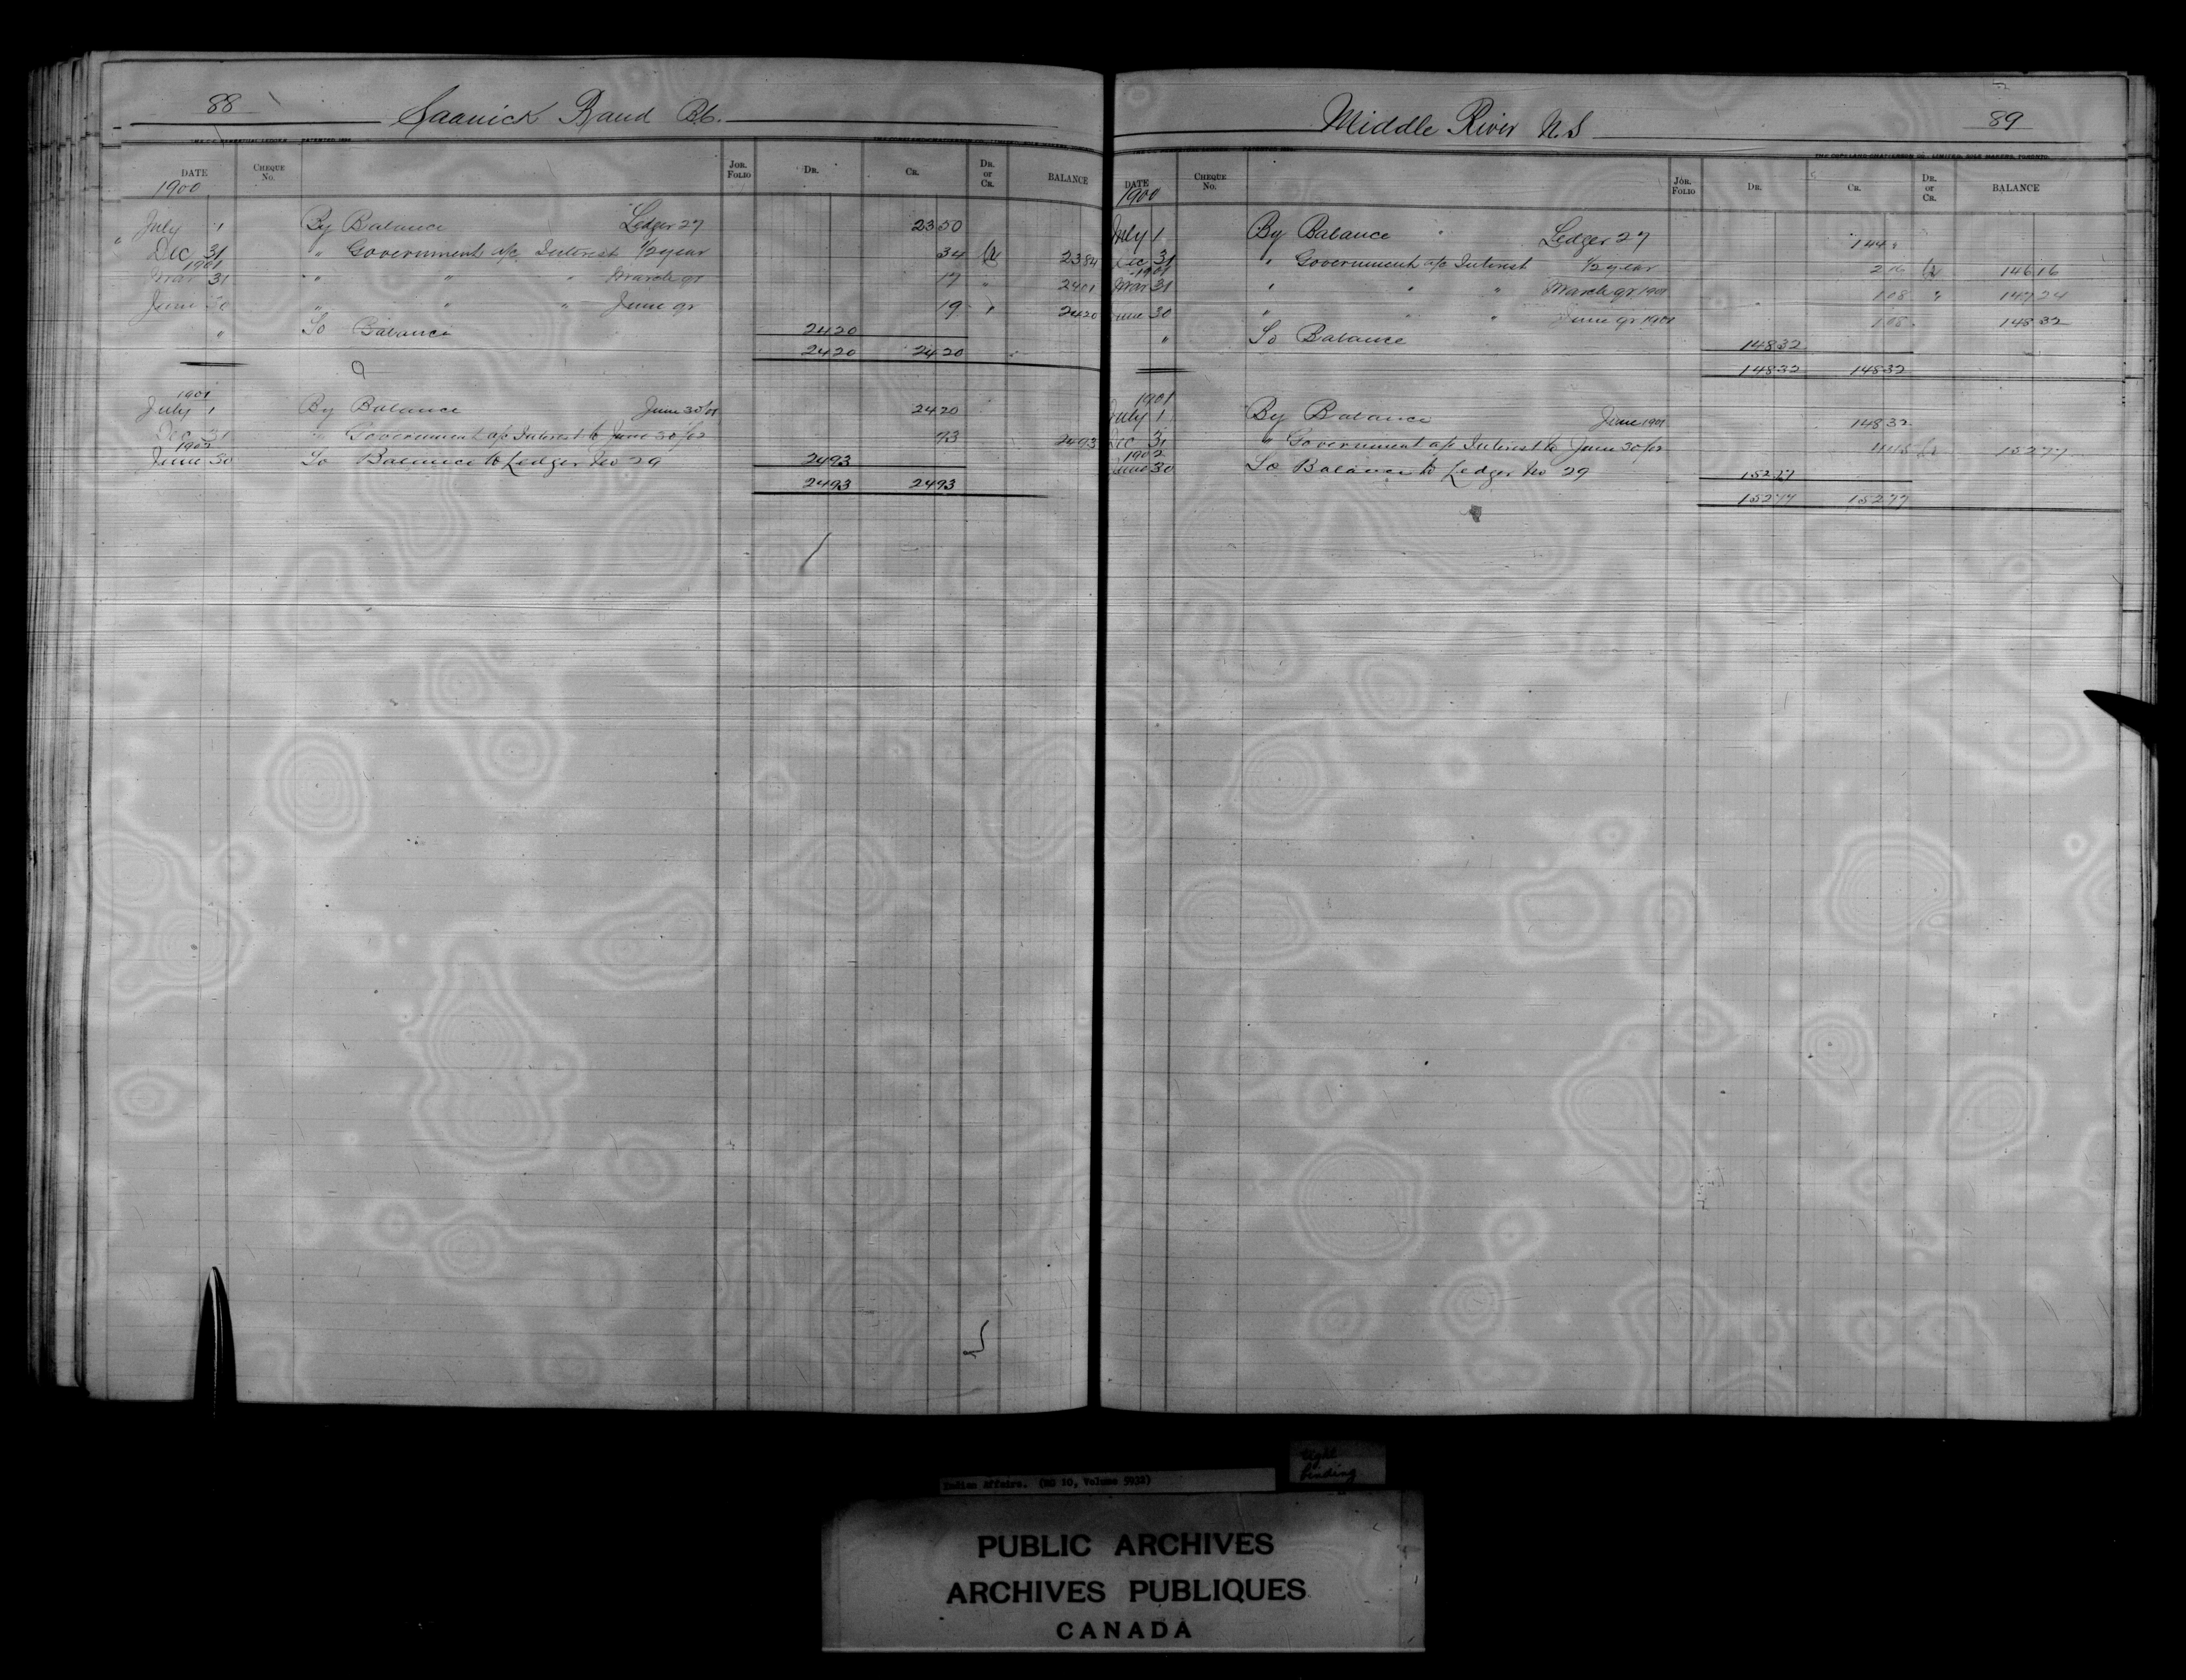 88 Saanick Band B.C.
DATE CHEQUE No. JOR. FOLIO DR. CR. DR. or CR. BALANCE
1900
July 1 By Balance Ledger 27 23 50
" Dec 31 " Government a/c Interest 1/2 year 34 Cr 23 84
1901
Mar 31 " " " " March qr 17 " 24 01
June 30 " " " June qr 19 " 24 20
" To Balance 24 20
24 20 24 20
1901
July 1 By Balance June 30/01 24 20
Dec 31 " Government a/c Interest to June 30/02 73 24 93
1902
June 30 To Balance to Ledger No 29 24 93
24 93 24 93
Middle River N.S 89
DATE CHEQUE No. JOR. FOLIO DR. CR. DR. or CR. BALANCE
1900
July 1 By Balance " Ledger 27 144 "
Dec 31 " Government a/c Interest 1/2 year 2 16 Cr 146 16
1901
Mar 31 " " " March qr 1901 1 08 " 147 24
June 30 " " " June qr 1901 1 08 148 32
" To Balance 148 32
148 32 148 32
1901
July 1 By Balance June 1901 148 32
Dec 31 " Government a/c Interest to June 30/02 4 45 Cr 152 77
1902
June 30 To Balance to Ledger No 29 152 77
152 77 152 77
Indian Affairs. (RG 10, Volume 5932)
tight binding
PUBLIC ARCHIVES
ARCHIVES PUBLIQUES
CANADA